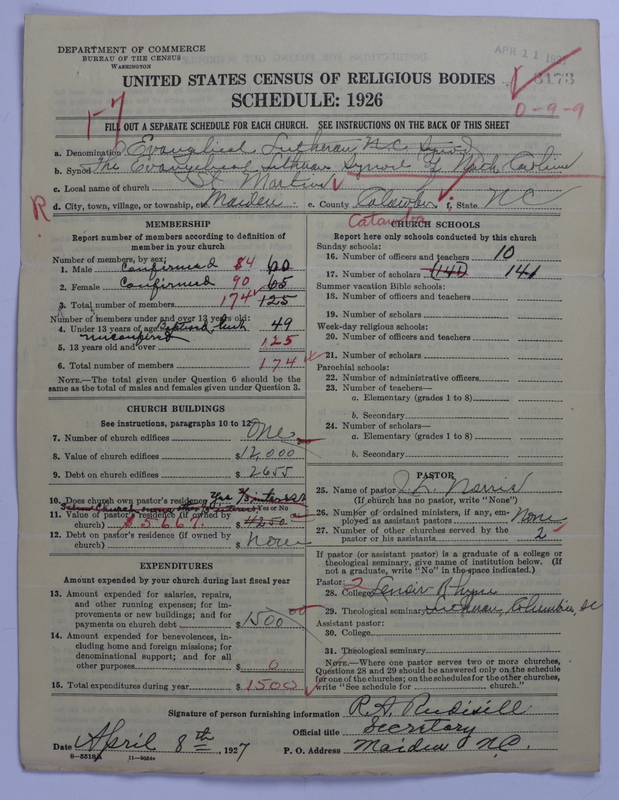 DEPARTMENT OF COMMERCE
BUREAU OF THE CENSUS
WASHINGTON
APR 11 192
UNITED STATES CENSUS OF RELIGIOUS BODIES
3173
SCHEDULE: 1926
0-9-9
17
FILL OUT A SEPARATE SCHEDULE FOR EACH CHURCH. SEE INSTRUCTIONS ON THE BACK OF THIS SHEET
a. Denomination Evangelical Lutheran N.C. Synod
b. Synod The Evangelical Lutheran Synod of North Carolina
c. Local name of church St. Martins
R d. City, town, village, or township, etc. Maiden e. County Catawba f. State N C
Catawba
MEMBERSHIP
Report number of members according to definition of
member in your church
Number of members, by sex:
1. Male Confirmed 84 60
2. Female Confirmed 90 65
3. Total number of members 174 125
Number of members under and over 13 years old:
4. Under 13 years of age 49
unconfirmed
5. 13 years old and over 125
6. Total number of members 174
NOTE.—The total given under Question 6 should be the
same as the total of males and females given under Question 3.
CHURCH BUILDINGS
See instructions, paragraphs 10 to 12
7. Number of church edifices One
8. Value of church edifices $12,000
9. Debt on church edifices $2655
10. Does church own pastor's residence Yes 1/3 interest
Yes or No
11. Value of pastor's residence (if owned by
church) $5667. $4250
12. Debt on pastor's residence (if owned by
church) $ None
EXPENDITURES
Amount expended by your church during last fiscal year
13. Amount expended for salaries, repairs,
and other running expenses; for im-
provements or new buildings; and for
payments on church debt $1500 00
14. Amount expended for benevolences, in-
cluding home and foreign missions; for
denominational support; and for all
other purposes $ 0
15. Total expenditures during year $ 1500
CHURCH SCHOOLS
Report here only schools conducted by this church
Sunday schools:
16. Number of officers and teachers 10
17. Number of scholars 141 141
Summer vacation Bible schools:
18. Number of officers and teachers
19. Number of scholars
Week-day religious schools:
20. Number of officers and teachers
21. Number of scholars
Parochial schools:
22. Number of administrative officers
23. Number of teachers—
a. Elementary (grades 1 to 8)
b. Secondary
24. Number of scholars—
a. Elementary (grades 1 to 8)
b. Secondary
PASTOR
25. Name of pastor J. L. Norris
(If church has no pastor, write "None")
26. Number of ordained ministers, if any, em-
ployed as assistant pastors None
27. Number of other churches served by the
pastor or his assistants 2
If pastor (or assistant pastor) is a graduate of a college or
theological seminary, give name of institution below. (If
not a graduate, write "No" in the space indicated.)
Pastor: 2
28. College Lenoir Rhyne
29. Theological seminary Lutheran, Columbia, SC
Assistant pastor:
30. College
31. Theological seminary
NOTE.—Where one pastor serves two or more churches,
Questions 28 and 29 should be answered only on the schedule
for one of the churches; on the schedules for the other churches,
write "See schedule for church."
Signature of person furnishing information R. A. Rudisill
Official title Secretary
Date April 8th, 1927 P. O. Address Maiden N.C.
8-5518a 11-9024a